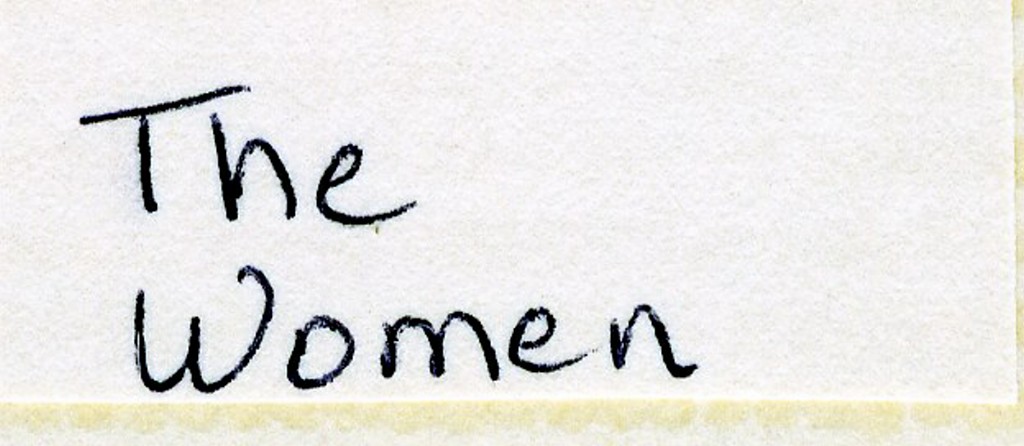 The
Women